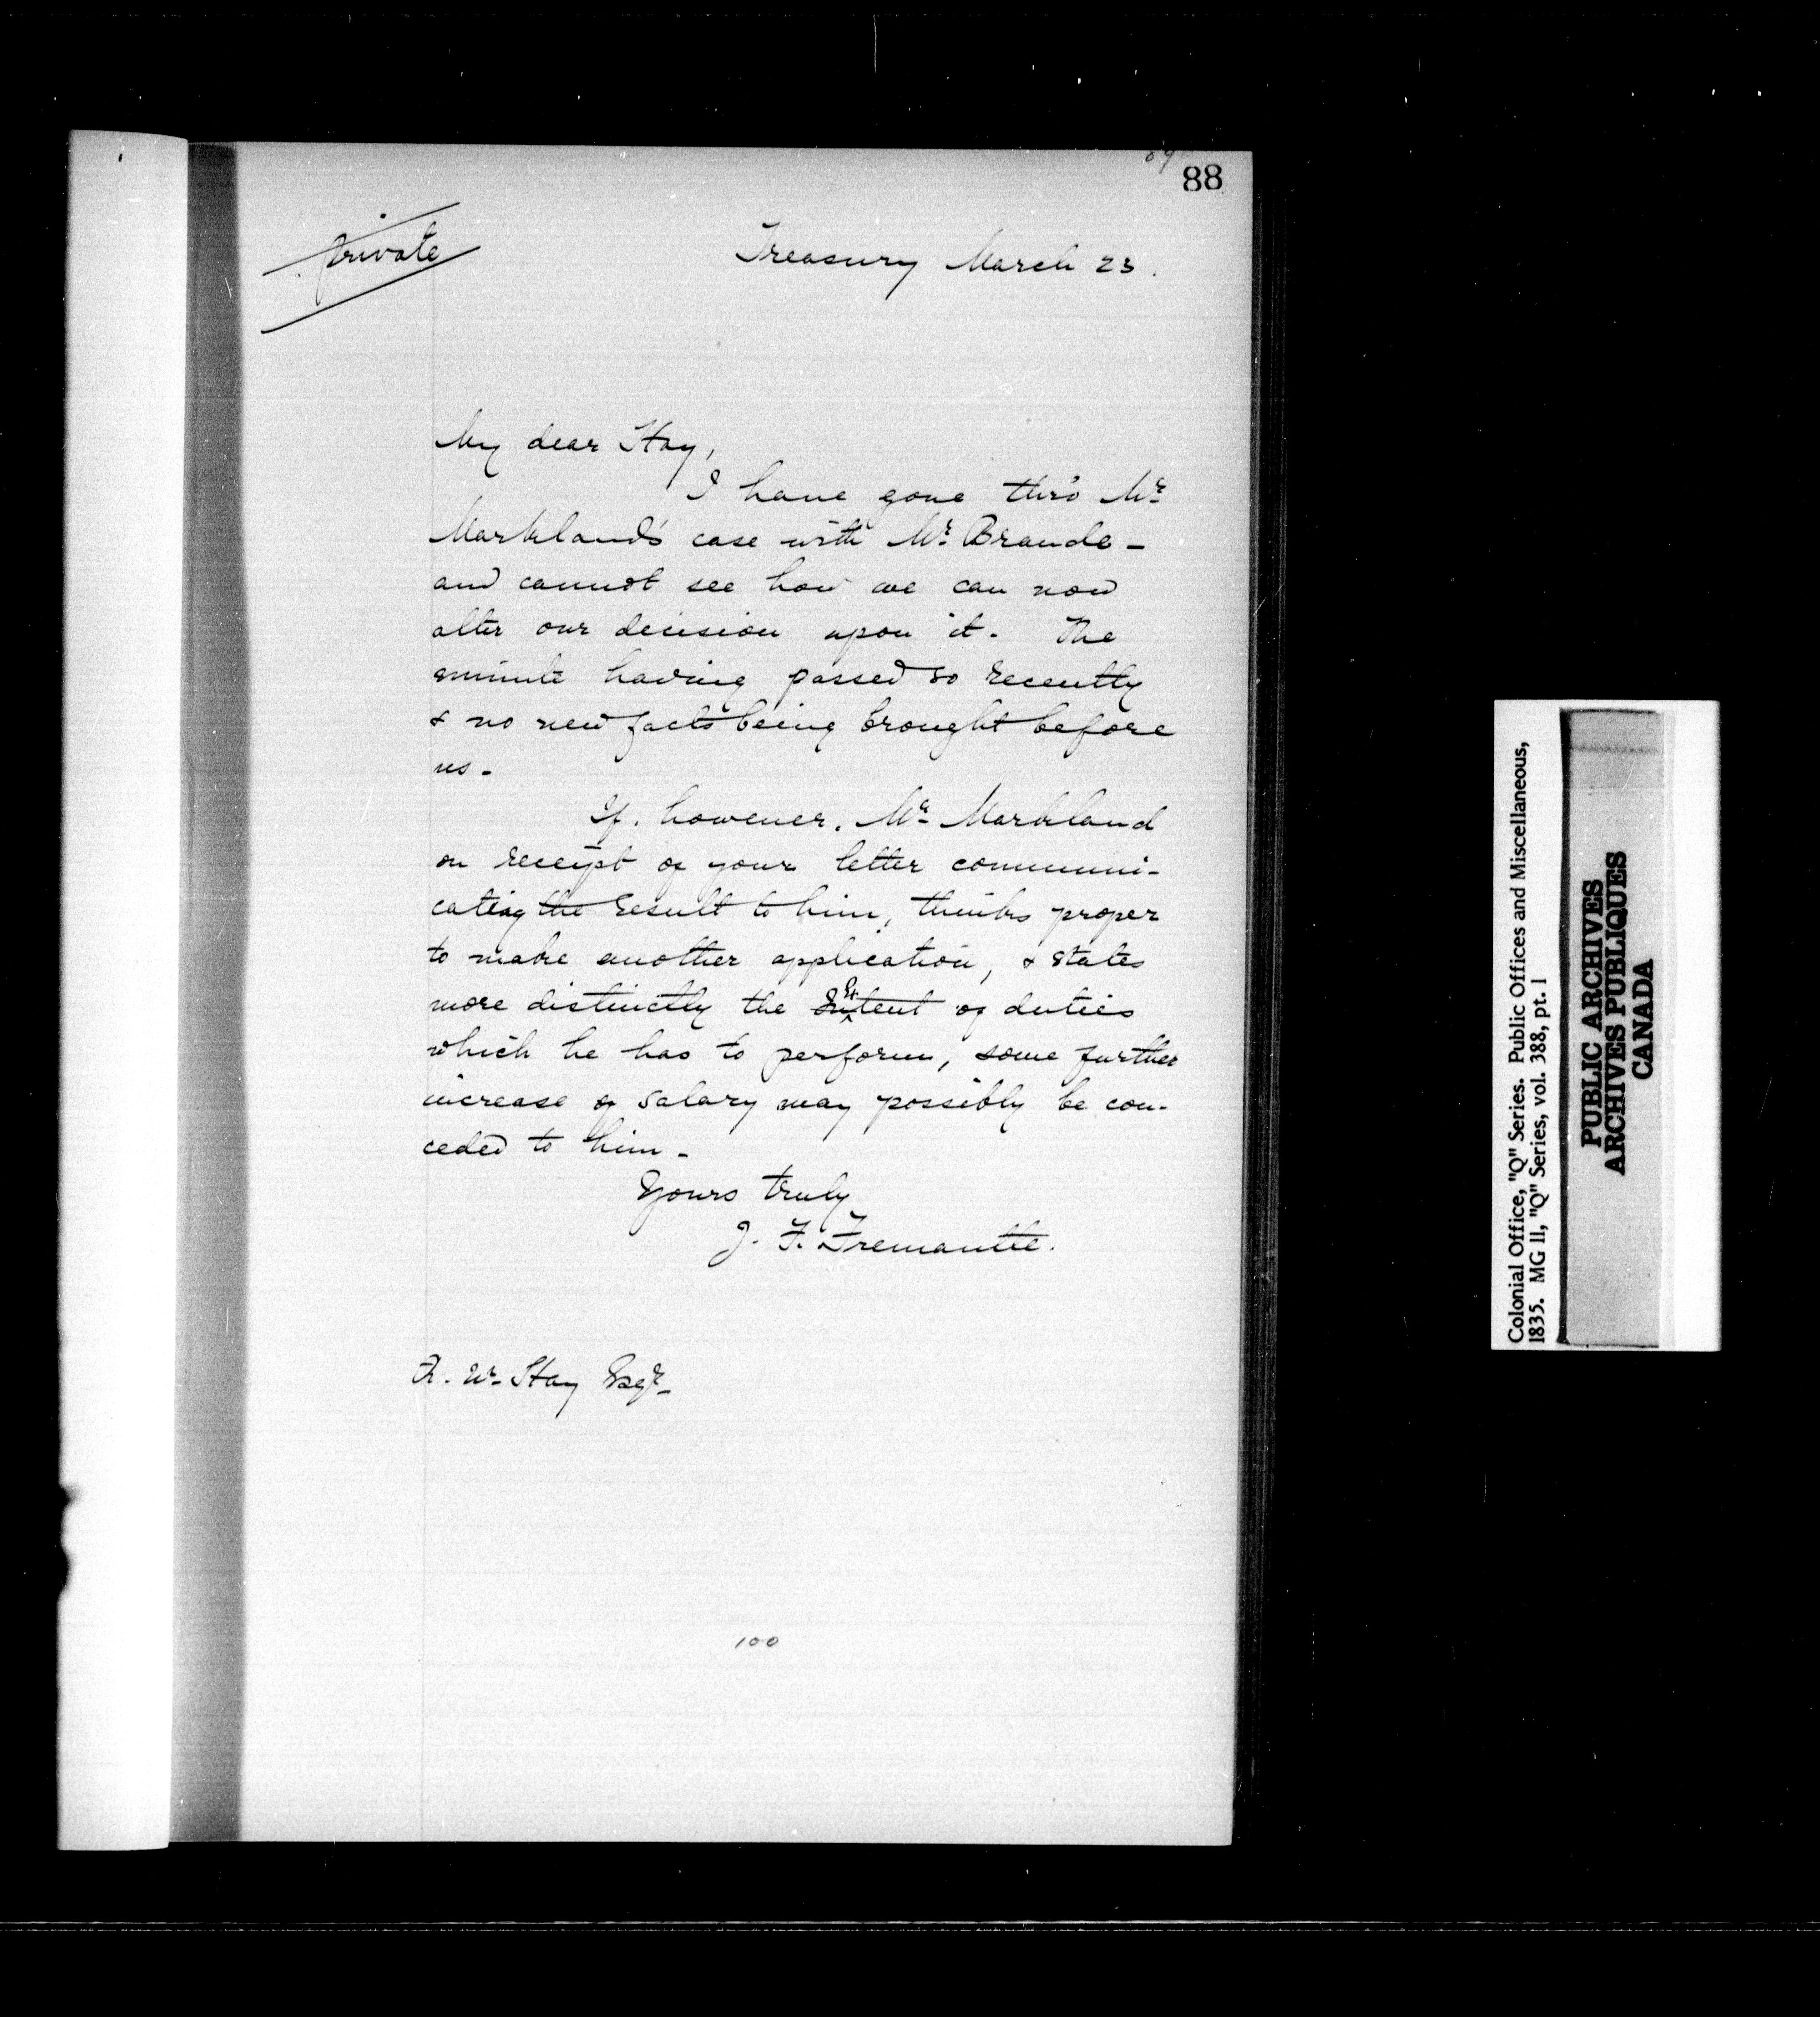 88
private
Treasury March 23.
My dear Hay,
I have gone thro' Mr
Markland's case with Mr Brande -
and cannot see how we can now
alter our decision upon it. The
minute having passed so recently
& no new facts being brought before
us -
If, however, Mr Markland
on receipt of your letter communi-
cating the result to him, thinks proper
to make another application, & states
more distinctly the Extent of duties
which he has to perform, some further
increase of salary may possibly be con-
ceded to him -
Yours truly
J. F. Fremantle.
R. W. Hay Esqr
100
Colonial Office, "Q" Series. Public Offices and Miscellaneous,
1835. MG 11, "Q" Series, vol. 388, pt. 1
PUBLIC ARCHIVES
ARCHIVES PUBLIQUES
CANADA